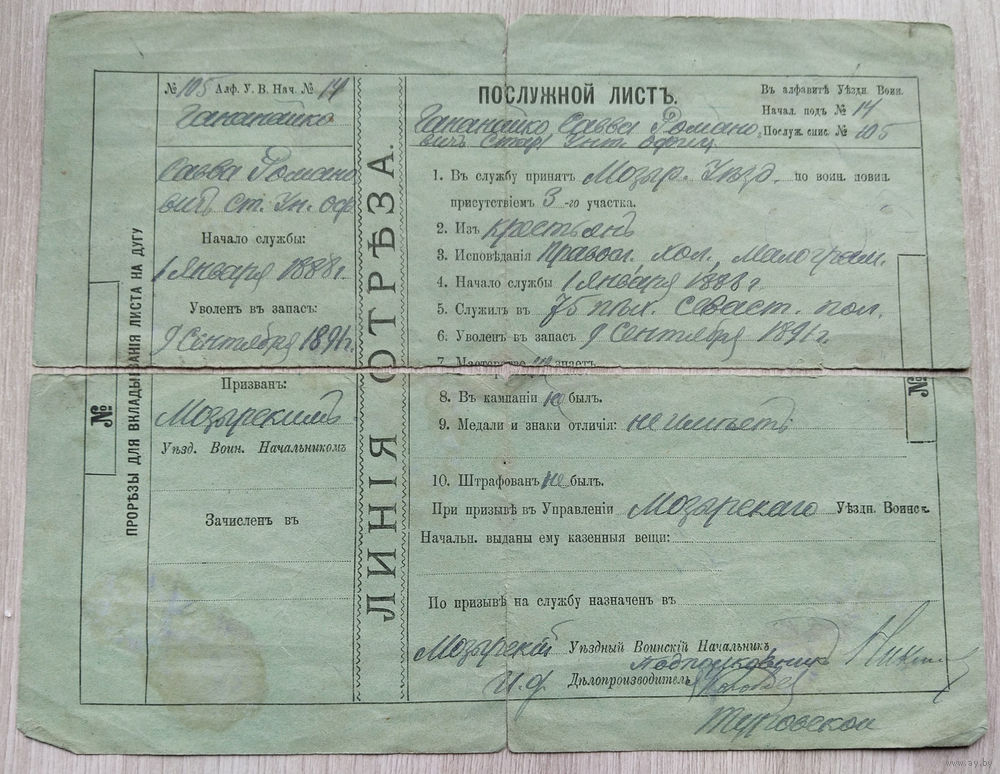 № 105 Алф. У. В. Нач. № 14
Гапанайко
Савва Романо
вичъ ст. Ун. оф
Начало службы:
1 Января 1888 г.
Уволенъ въ запасъ:
9 Сентября 1891 г.
Призванъ:
Мозырскимъ
Уѣзд. Воин. Начальникомъ
Зачисленъ въ
ПРОРѢЗЫ ДЛЯ ВКЛАДЫВАНІЯ ЛИСТА НА ДУГУ
№
ЛИНІЯ ОТРѢЗА.
ПОСЛУЖНОЙ ЛИСТЪ.
Въ алфавитѣ Уѣздн. Воин.
Начал. подъ № 14
Послуж. спис. № 105
Гапанайко Савва Романо
вичъ Стар. Унт. офиц.
1. Въ службу принятъ Мозыр. Уѣзд. по воин. повин.
присутствіемъ 3-го участка.
2. Изъ крестьянъ
3. Исповѣданія Правосл. хол. малограм.
4. Начало службы 1 января 1888 г.
5. Служилъ въ 75 пѣх. Севаст. пол.
6. Уволенъ въ запасъ 9 Сентября 1891 г.
7. Мастерство не знаетъ
8. Въ кампаніи не былъ.
9. Медали и знаки отличія: не имѣетъ
10. Штрафованъ не былъ.
При призывѣ въ Управленіи Мозырскаго Уѣздн. Воинск.
Начальн. выданы ему казенныя вещи:
По призывѣ на службу назначенъ въ
Мозырскій Уѣздный Воинскій Начальникъ
Подполковникъ
И. д. Дѣлопроизводитель
Туровской
№
www.ay.by